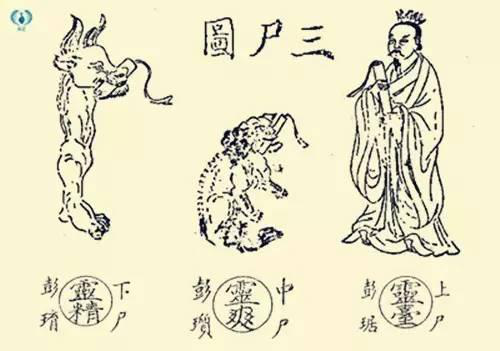 三尸圖
上尸
靈臺
彭琚
中尸
靈爽
彭瓆
下尸
靈精
彭